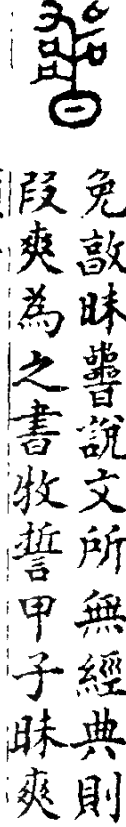 免敦昧說文所無經典則
叚爽為之書牧誓甲子昧爽